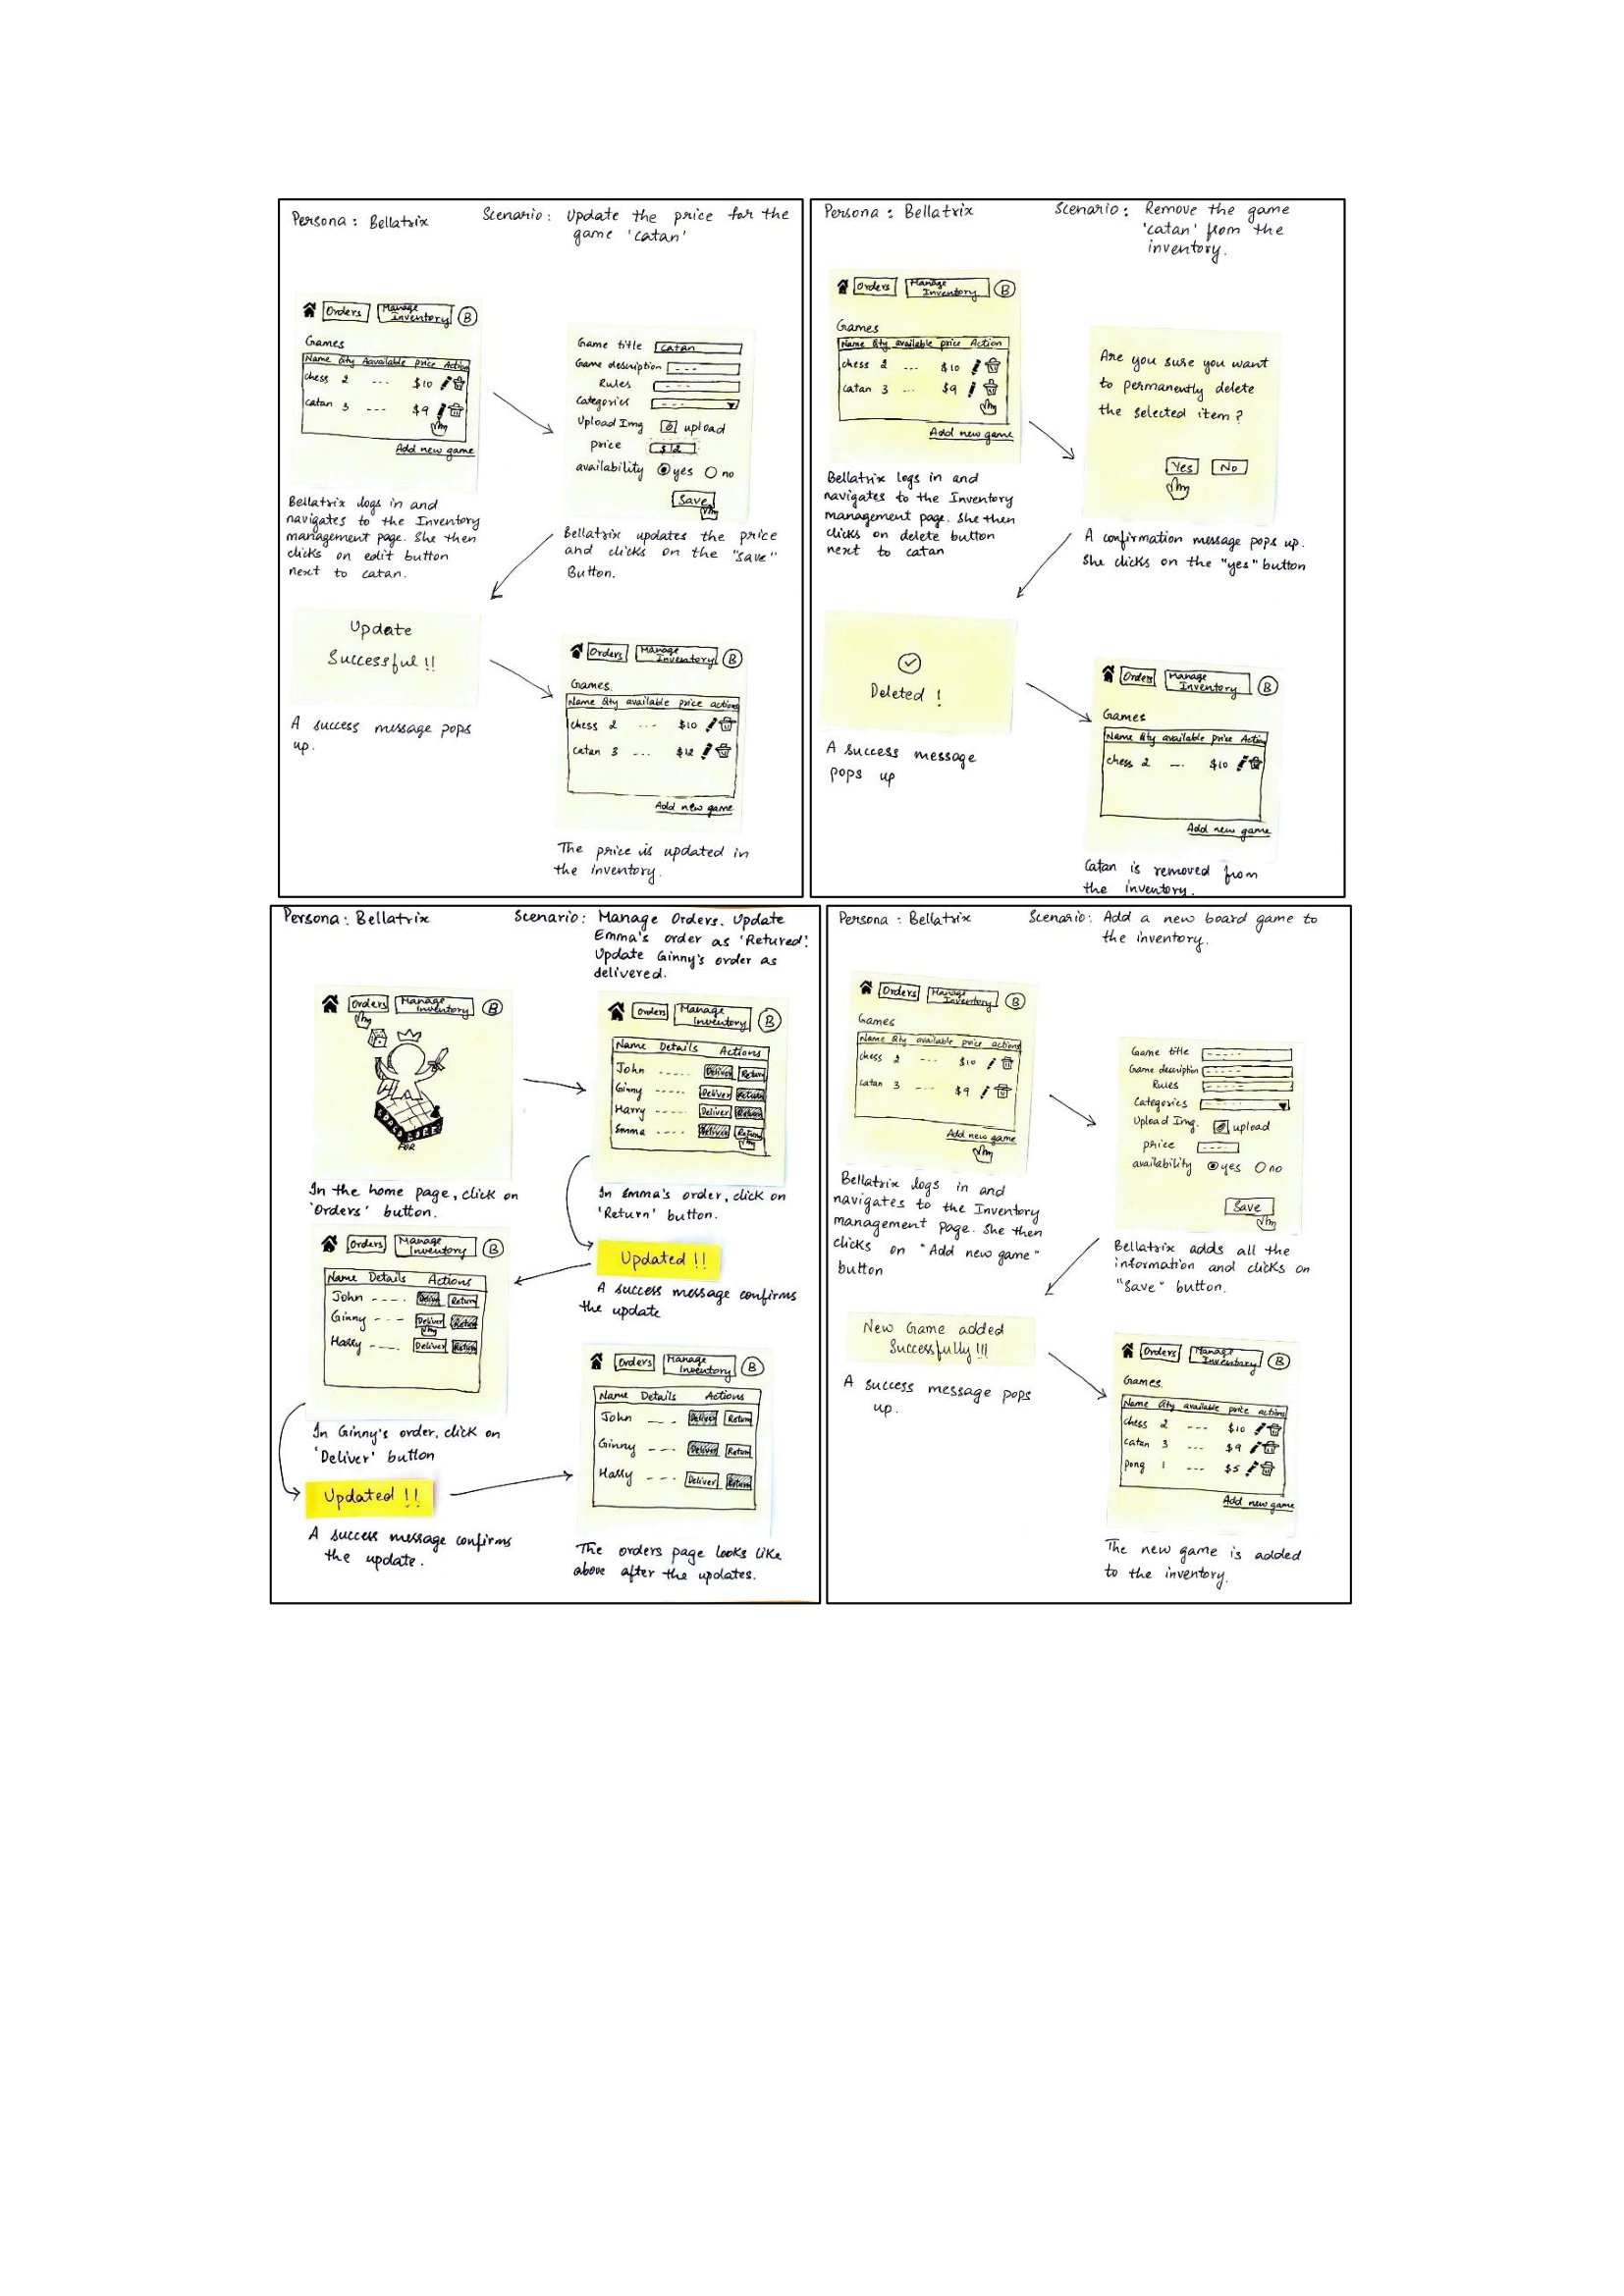 Persona: Bellatrix
Scenario: Update the price for the
game 'catan'
Orders
Manage
Inventory
B
Games
Name Qty Aavailable price Action
chess 2 --- $10
catan 3 --- $9
Add new game
Bellatrix logs in and
navigates to the Inventory
management page. She then
clicks on edit button
next to catan.
Game title catan
Game description ---
Rules ---
Categories ---
Upload Img upload
price $12
availability yes no
Save
Bellatrix updates the price
and clicks on the "save"
Button.
Update
Successful!!
A success message pops
up.
Orders
Manage
Inventory
B
Games.
Name Qty available price action
chess 2 --- $10
catan 3 --- $12
Add new game
The price is updated in
the inventory.
Persona: Bellatrix
Scenario: Remove the game
'catan' from the
inventory.
Orders
Manage
Inventory
B
Games
Name Qty available price Action
chess 2 --- $10
catan 3 --- $9
Add new game
Bellatrix logs in and
navigates to the Inventory
management page. She then
clicks on delete button
next to catan
Are you sure you want
to permanently delete
the selected item?
Yes No
A confirmation message pops up.
She clicks on the "yes" button
Deleted!
A success message
pops up
Orders
Manage
Inventory
B
Games
Name Qty available price Action
chess 2 --- $10
Add new game
Catan is removed from
the inventory.
Persona: Bellatrix
Scenario: Manage Orders. Update
Emma's order as 'Retured'.
Update Ginny's order as
delivered.
Orders
Manage
Inventory
B
FOR
In the home page, click on
'Orders' button.
Orders
Manage
Inventory
B
Name Details Actions
John ----- Deliver Return
Ginny ----- Deliver Return
Harry ----- Deliver Return
Emma ---- Deliver Return
In Emma's order, click on
'Return' button.
Updated!!
A success message confirms
the update
Orders
Manage
Inventory
B
Name Details Actions
John ---- Deliver Return
Ginny --- Deliver Return
Harry ---- Deliver Return
In Ginny's order, click on
'Deliver' button
Updated!!
A success message confirms
the update.
Orders
Manage
Inventory
B
Name Details Actions
John --- Deliver Return
Ginny --- Deliver Return
Harry --- Deliver Return
The orders page looks like
above after the updates.
Persona: Bellatrix
Scenario: Add a new board game to
the inventory.
Orders
Manage
Inventory
B
Games
Name Qty available price actions
chess 2 --- $10
catan 3 --- $9
Add new game
Bellatrix logs in and
navigates to the Inventory
management page. She then
clicks on "Add new game"
button
Game title -----
Game description -----
Rules -----
Categories -----
Upload Img. upload
price ----
availability yes no
Save
Bellatrix adds all the
information and clicks on
"Save" button.
New Game added
Successfully!!!
A success message pops
up.
Orders
Manage
Inventory
B
Games.
Name Qty available price actions
chess 2 --- $10
catan 3 --- $9
pong 1 --- $5
Add new game
The new game is added
to the inventory.